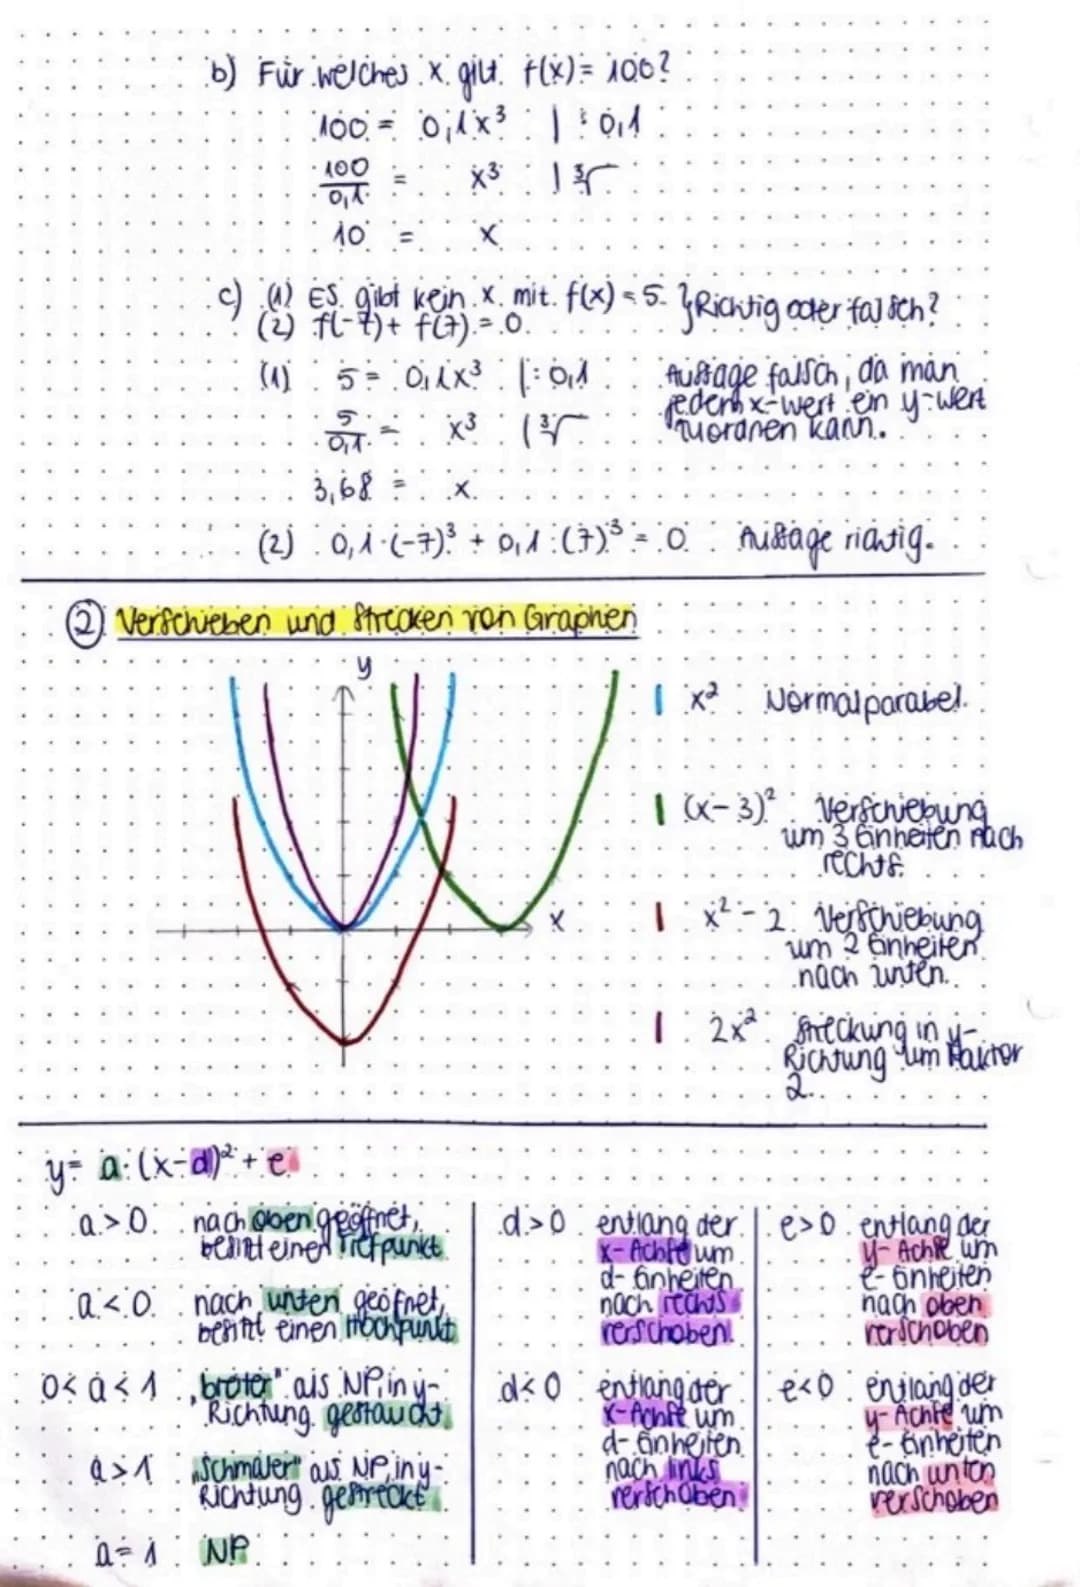 b) Für welches x gilt f(x) = 100?
100 = 0,1x³ | : 0,1
100/0,1 = x³ | ∛
10 = x
c) (1) Es gibt kein x mit f(x) = 5. } Richtig oder falsch?
(2) f(-7) + f(7) = 0.
(1) 5 = 0,1x³ | : 0,1
5/0,1 = x³ | ∛
3,68 = x
Aussage falsch, da man
jedem x-Wert ein y-Wert
zuordnen kann.
(2) 0,1·(-7)³ + 0,1·(7)³ = 0 Aussage richtig.
② Verschieben und Strecken von Graphen
y
x
x² Normalparabel
(x-3)² Verschiebung
um 3 Einheiten nach
rechts.
x² - 2 Verschiebung
um 2 Einheiten
nach unten.
2x² Streckung in y-
Richtung um Faktor
2.
y = a·(x-d)² + e
a > 0 nach oben geöffnet,
besitzt einen Tiefpunkt
a < 0 nach unten geöfnet,
besitzt einen Hochpunkt
0 < a < 1 „breiter" als NP, in y-
Richtung gestaucht
a > 1 „Schmaler" als NP, in y-
Richtung gestreckt
a = 1 NP
d > 0 entlang der
x-Achse um
d-Einheiten
nach rechts
verschoben.
d < 0 entlang der
x-Achse um
d-Einheiten
nach links
verschoben
e > 0 entlang der
y-Achse um
e-Einheiten
nach oben
verschoben
e < 0 entlang der
y-Achse um
e-Einheiten
nach unten
verschoben